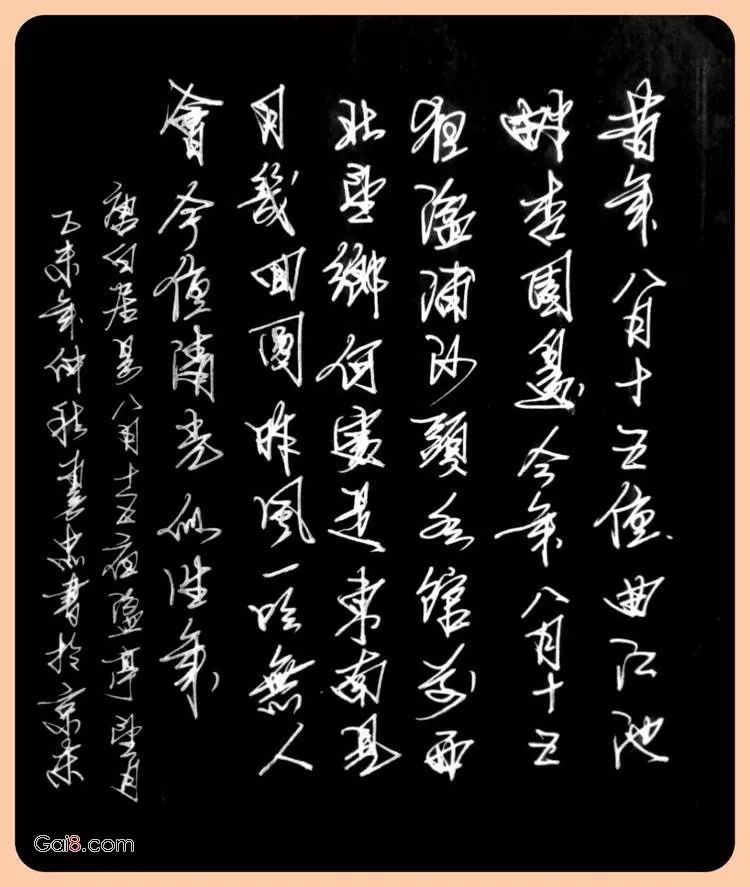 昔年八月十五夜曲江池
畔杏園邊今年八月十五
夜湓浦沙頭水館前西
北望鄉何處是東南見
月幾回圓昨風一吹無人
會今夜清光似往年
唐白居易八月十五夜湓亭望月
乙未年仲秋忠書於京東
Gai8.com